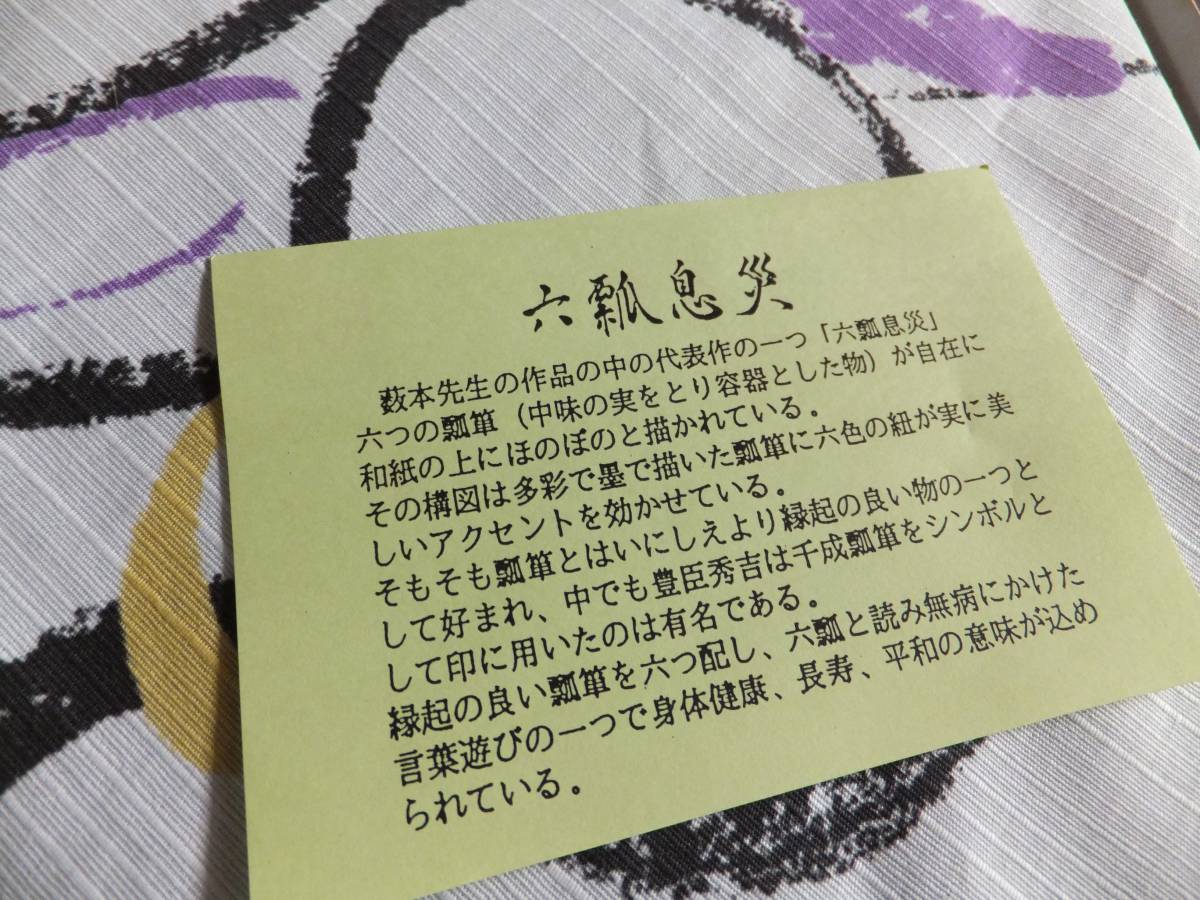 六瓢息災
藪本先生の作品の中の代表作の一つ「六瓢息災」
六つの瓢箪（中味の実をとり容器とした物）が自在に
和紙の上にほのぼのと描かれている。
その構図は多彩で墨で描いた瓢箪に六色の紐が実に美
しいアクセントを効かせている。
そもそも瓢箪とはいにしえより縁起の良い物の一つと
して好まれ、中でも豊臣秀吉は千成瓢箪をシンボルと
して印に用いたのは有名である。
縁起の良い瓢箪を六つ配し、六瓢と読み無病にかけた
言葉遊びの一つで身体健康、長寿、平和の意味が込め
られている。